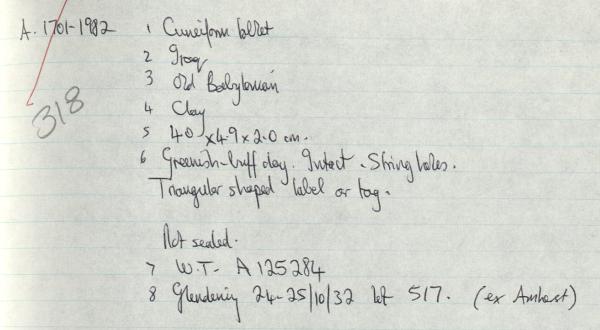 A. 1701-1982 1 Cuneiform tablet
318
2 Iraq
3 Old Babylonian
4 Clay
5 4.0 x 4.9 x 2.0 cm.
6 Greenish-buff clay. Intact. String holes.
Triangular shaped label or tag.
Not sealed.
7 W.T. A 125284
8 Glendening 24-25/10/32 lot 517. (ex Amherst)